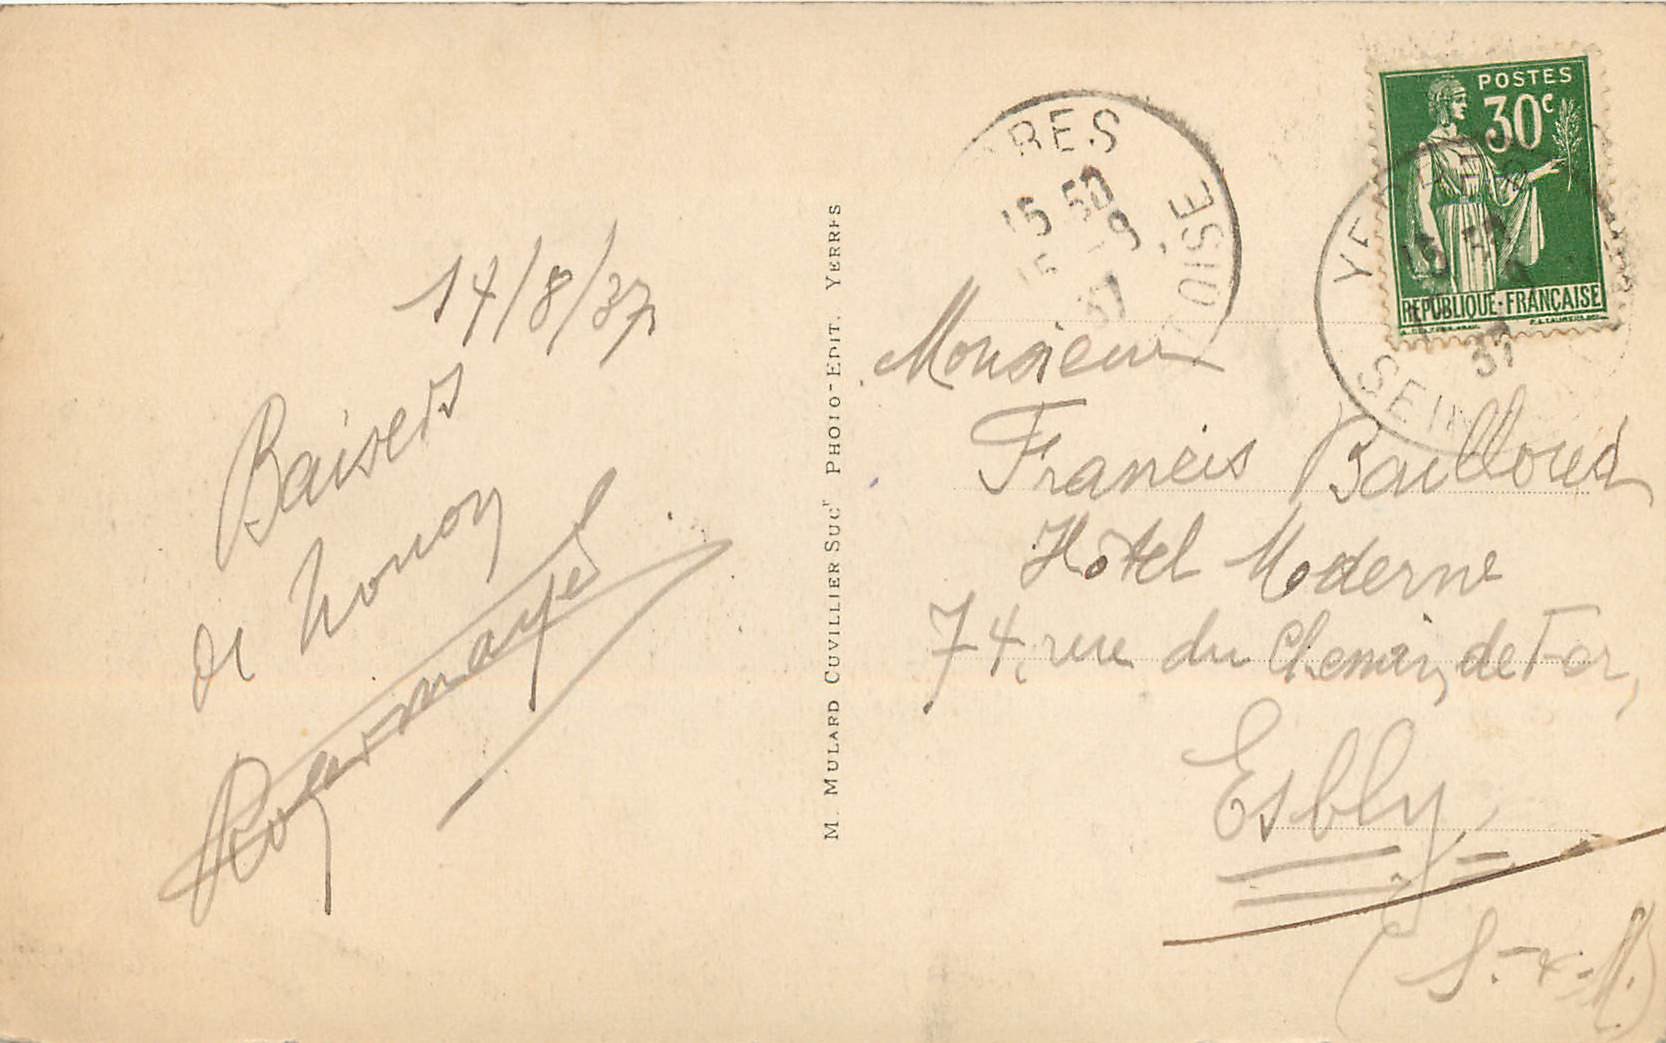 14/8/37
Baisers
de nonon
Roger mayed
M. MULARD CUVILLIER SUCr PHOTO-EDIT. YERRES
RES
15 50
37
OISE
POSTES
30c
RÉPUBLIQUE·FRANÇAISE
YE
SEIN
37
Monsieur
Francis Bailloud
Hôtel Moderne
74, rue du Chemin de Fer,
Esbly
(S.-&-M.)